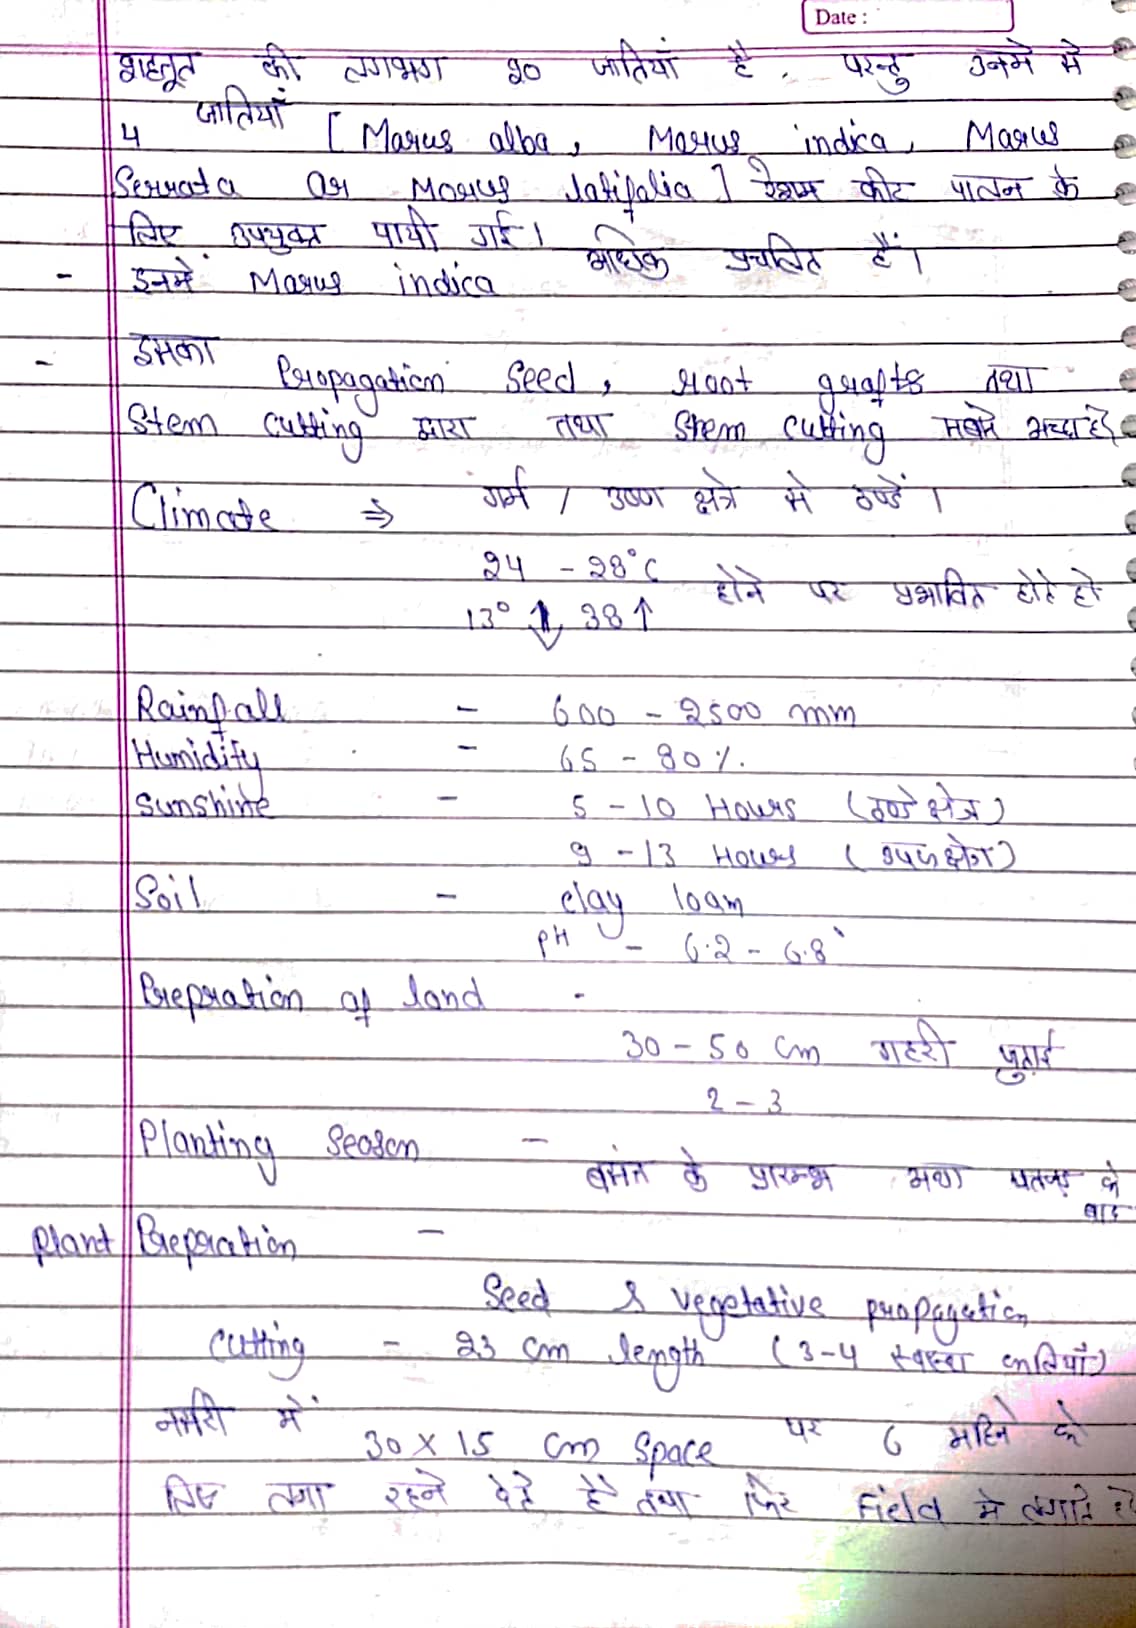 Date :
शहतूत की लगभग 20 जातियाँ है, परन्तु उनमे से
4 जातियाँ [ Morus alba, Morus indica, Morus
Serrata or Morus latifolia ] रेशम कीट पालन के
लिए उपयुक्त पायी गई।
- इनमें Morus indica अधिक प्रचलित हैं।
- इसका Propagation Seed, root grafts तथा
Stem cutting द्वारा तथा Stem cutting सबसे अच्छा है
Climate ⇒ गर्म / उष्ण क्षेत्रे से ठण्डें।
24 - 28°C
13° ↓ 38 ↑ होने पर प्रभावित होते हो
Rainfall - 600 - 2500 mm
Humidity - 65 - 80 %.
Sunshine - 5 - 10 Hours (ठण्डे क्षेत्र)
9 - 13 Hours ( क्षेत्र)
Soil - clay loam
PH - 6.2 - 6.8
Prepration of land -
30 - 50 cm गहरी जुताई
2 - 3
Planting Season - बसंत के प्रारम्भ पतझड़ के
बाद
Plant Prepration -
Seed & vegetative propagation
Cutting - 23 cm length (3-4 स्वस्थ कलियाँ)
नर्सरी में 30 x 15 cm Space पर 6 महिने के
लिए लगा रहने देते है तथा फिर Field मे लगाते है